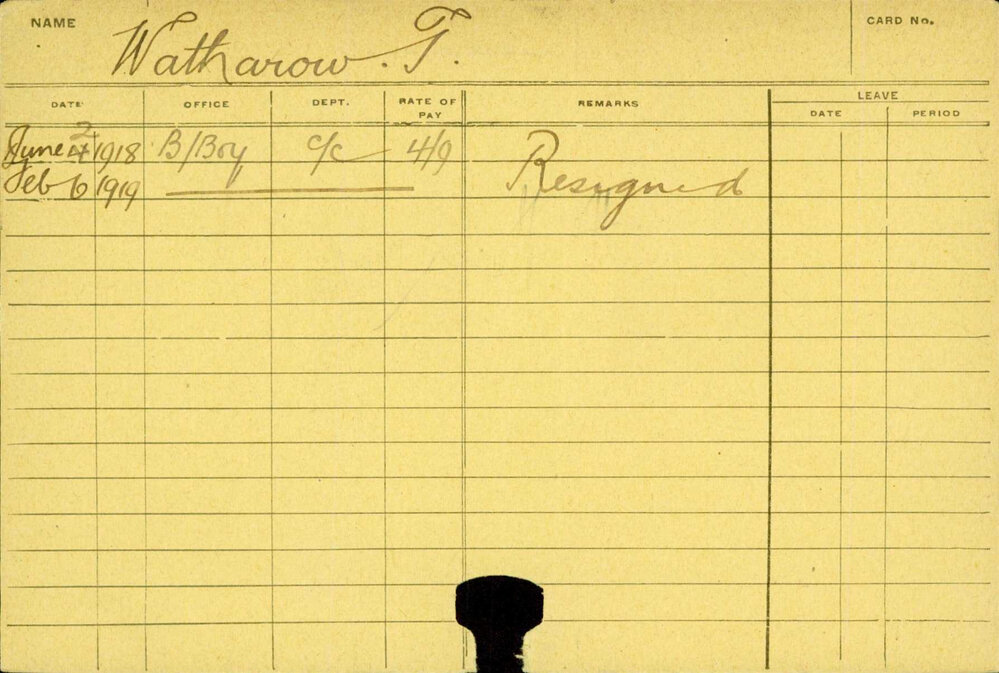 NAME Watharow. T. CARD No.
DATE OFFICE DEPT. RATE OF PAY REMARKS LEAVE
DATE PERIOD
June 2 1918 B/Boy c/c 4/9 Resigned
Feb 6 1919